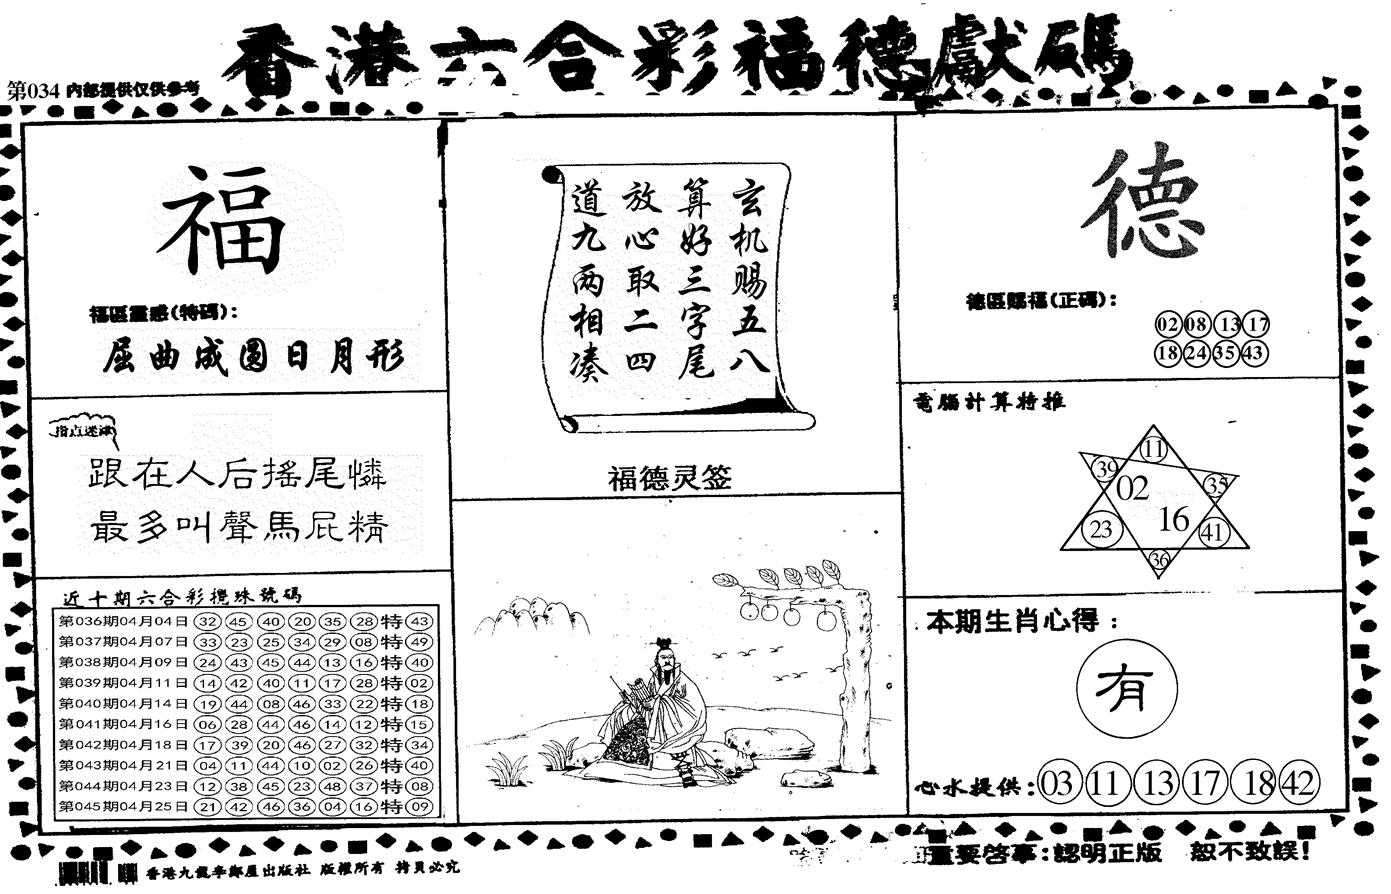 香港六合彩福德獻碼
第034 内部提供仅供参考
福
福區靈感(特碼):
屈曲成圆日月形
指点迷津
跟在人后搖尾憐
最多叫聲馬屁精
近十期六合彩攪珠號碼
第036期04月04日 32 45 40 20 35 28 特 43
第037期04月07日 33 23 25 34 29 08 特 49
第038期04月09日 24 43 45 44 13 16 特 40
第039期04月11日 14 42 40 11 17 28 特 02
第040期04月14日 19 44 08 46 33 22 特 18
第041期04月16日 06 28 44 46 14 12 特 15
第042期04月18日 17 39 20 46 27 32 特 34
第043期04月21日 04 11 44 10 02 26 特 40
第044期04月23日 12 38 45 23 48 37 特 08
第045期04月25日 21 42 46 36 04 16 特 09
玄机赐五八
算好三字尾
放心取二四
道九两相凑
福德灵签
德
德區賜福(正碼):
02 08 13 17
18 24 35 43
電腦計算特推
11
39
02
35
16
23
41
36
本期生肖心得:
有
心水提供: 03 11 13 17 18 42
重要啓事:認明正版 恕不致誤!
香港九龍李鄭屋出版社 版權所有 拷貝必究